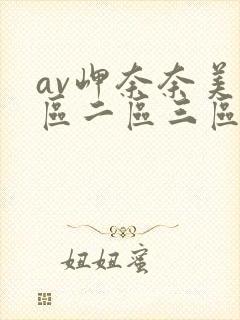 av岬奈奈美
區二區三區
妞妞蜜